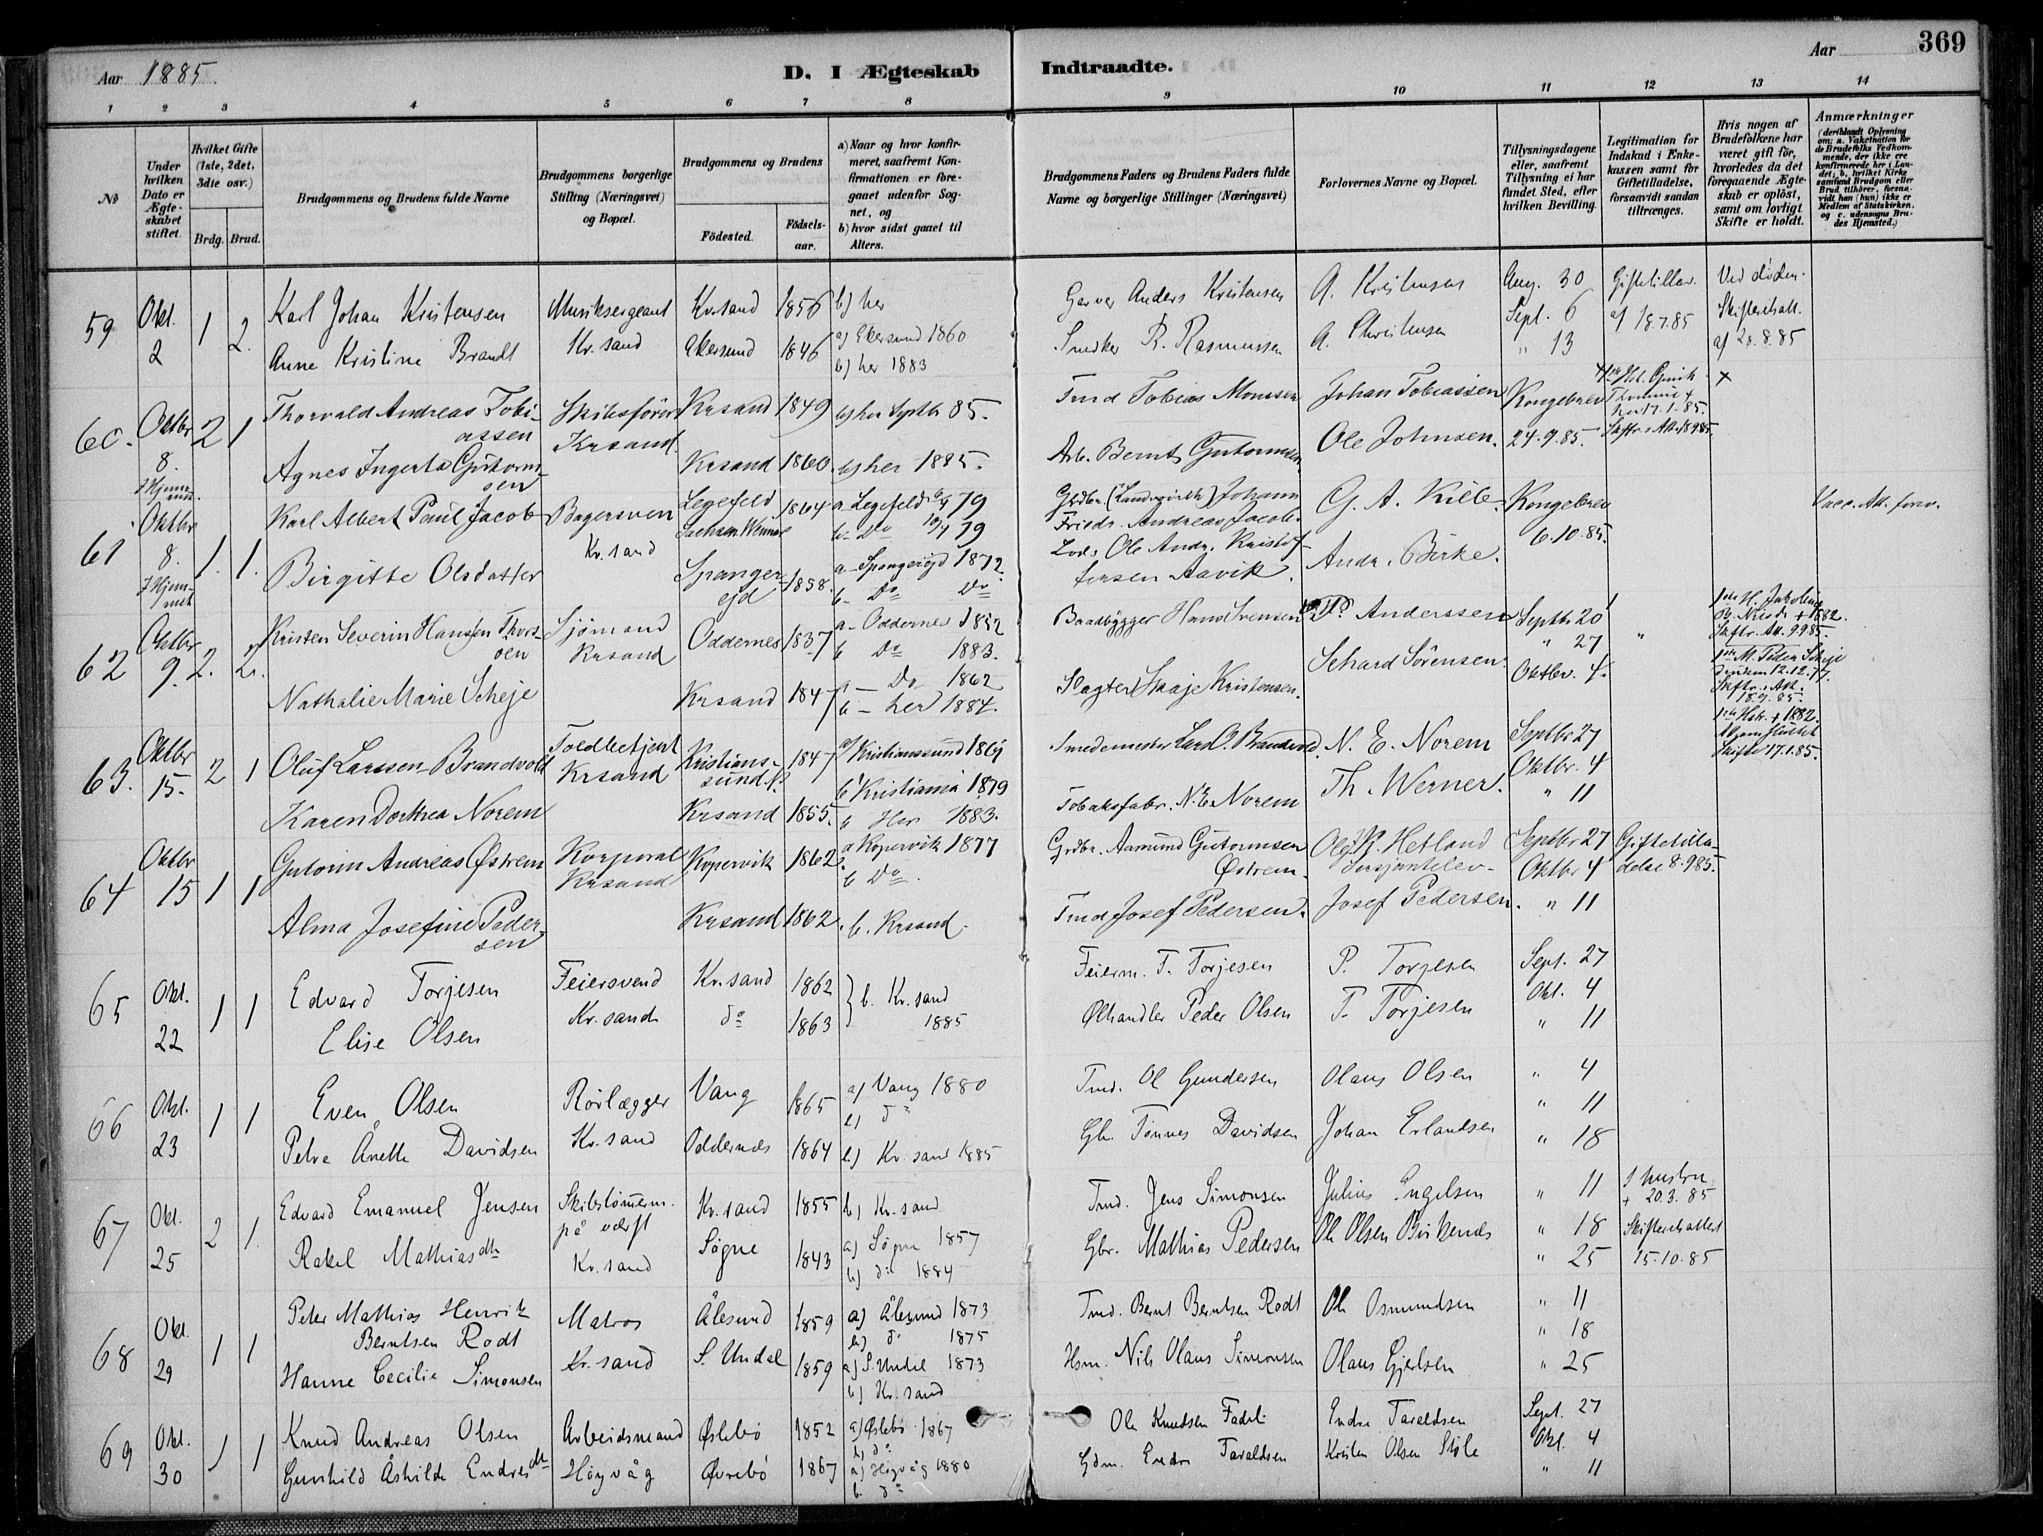 369
Aar 1885.
D. I Ægteskab Indtraadte.
Aar
1 2 3 4 5 6 7 8 9 10 11 12 13 14
№
Under hvilken Dato er Ægteskabet stiftet.
Hvilket Gifte (1ste, 2det, 3die osv.)
Brdg. Brud.
Brudgommens og Brudens fulde Navne
Brudgommens borgerlige Stilling (Næringsvei) og Bopæl.
Brudgommens og Brudens
Födested. Födselsaar.
a) Naar og hvor konfirmeret, saafremt Konfirmationen er foregaaet udenfor Sognet, og
b) hvor sidst gaaet til Alters.
Brudgommens Faders og Brudens Faders fulde Navne og borgerlige Stillinger (Næringsvei)
Forlovernes Navne og Bopæl.
Tillysningsdagene eller, saafremt Tillysning ei har fundet Sted, efter hvilken Bevilling.
Legitimation for Indskud i Enkekassen samt for Giftetilladelse, forsaavidt saadan tiltrænges.
Hvis nogen af Brudefolkene har været gift för, hvorledes da det foregaaende Ægteskab er oplöst, samt om lovligt Skifte er holdt.
Anmærkninger
59 Okt. 2 1 2.
Karl Johan Kristensen Musiksergeant Kr.sand 1856 b) her
Garver Anders Kristensen A. Kristensen Aug. 30 Giftetillad. Ved döden.
Anne Kristine Brandt Kr.sand Ekersund 1846 a) Ekersund 1860
b) her 1883
Snedker R. Rasmussen A. Christensen Sept. 6 af 18.7.85 Skifteattest
" 13 af 20.8.85
60. Oktbr 8. I Hjemmet. 2 1
Thorvald Andreas Tobiassen Skibsfører Krsand Krsand 1849 b) her Septbr 85.
Tmd Tobias Monsen Johan Tobiassen Kongebrev 24-9.85.
Agnes Ingerta Gutormsen Krsand 1860. b) her 1885.
Arb. Bernt Gutormsen Ole Johnsen.
61 Oktbr 8. I Hjemmet 1. 1.
Karl Albert Paul Jacob Bagersven Kr.sand Legefeld Sachsen Weimar 1864 a- Legefeld 79
b- Do 79
Grdbr. (Landwirth) Johann Friedr. Andreas Jacob G. A. Kille Kongebrev 6.10.85. Vacc. Att. forev.
Birgitte Olsdatter Spangereid 1858. a- Spangereid 1872.
b- Do Do
Lods Ole Andr. Kristoffersen Aavik. Andr. Birke.
62 Oktbr 9. 2. 2.
Kristen Severin Hansen Thorsen Sjømand Krsand Oddernes 1837 a- Oddernes 1852
b Do 1883.
Baadbygger Hans Svensen P. Anderssen Septbr 20 "
" 27
Nathalie Marie Scheje Krsand 1847 a- Do 1862
b- her 1884.
Slagter Skaje Kristensen. Sehard Sörensen. Oktbr. 4.
1ste M. Peder Scheje
63. Oktbr 15. 2 1
Oluf Larssen Brandvold Toldbetjent Krsand Kristianssund N. 1847 a/ Kristianssund 1861
b/ Kristiania 1879
Smedemester Lars O. Brandvold. N. E. Norem Septbr 27
Oktbr. 4
Karen Dorthea Norem Krsand 1855. b Her 1883.
Tobaksfabr. N. E. Norem Th. Werner. " 11
Skifte 17.1.85.
64 Oktbr 15 1 1
Gutorm Andreas Østrem Korporal Krsand Kopervik 1862. a Kopervik 1877
b Do.
Grdbr. Aamund Gutormsen Østrem. Ole K. Hetland Sersjantelev- Septbr 27 Giftetilladelse 8.9.85.
Oktbr 4
Alma Josefine Pedersen Krsand 1862. b. Krsand.
Tmd Josef Pedersen. Josef Pedersen. " 11
65 Okt. 22 1 1
Edvard Torjesen Feiersvend Kr.sand 1862 b. Kr.sand 1885
Feierm. T. Torjesen P. Torjesen Sept. 27
Okt. 4
Elise Olsen Kr.sand do 1863
Ølhandler Peder Olsen T. Torjesen " 11
66 Okt. 23 1 1
Even Olsen Rörlægger Vang 1865 a) Vang 1880
b) do
Tmd. Ol Gundersen Olaus Olsen " 4
" 11
Petra Anette Davidsen Kr.sand Oddernes 1864 b.) Kr.sand 1885
Gbr. Tönnes Davidsen Johan Erlandsen " 18
67 Okt. 25 2 1.
Edvard Emanuel Jensen Skibstömerm. på værft Kr.sand 1855 b) Kr.sand
Tmd. Jens Simonsen Julius Engelsen " 11 1 hustru + 20.3.85
Rakel Mathiasdtr Kr.sand Sögne 1843 a) Sögne 1857
b) do 1884
Gbr. Mathias Pedersen Ole Olsen Birkenes " 18 Skifteattest
" 25 15.10.85
68 Okt. 29 1 1
Peter Mathias Henrik Berntsen Rodt Matros Ålesund 1859 a) Ålesund 1873
b) do 1875
Tmd. Bernt Berntsen Rodt Ole Osmundsen " 11
" 18
Hanne Cecilie Simonsen Kr.sand S. Undal 1859 a) S. Undal 1873
b) Kr.sand
Hsm. Nils Olaus Simonsen Olaus Gjertsen " 25
69 Okt. 30 1 1
Knud Andreas Olsen Arbeidsmand Øslebö 1852 a) Øslebö 1867
b) do
Ole Knudsen Endre Taraldsen Sept. 27
Okt. 4
Gunhild Åshilde Endresdtr Høgvåg Øvrebö 1867 a) Høgvåg 1880
b. do
Gdm. Endre Taraldsen Kristen Olsen Støle " 11